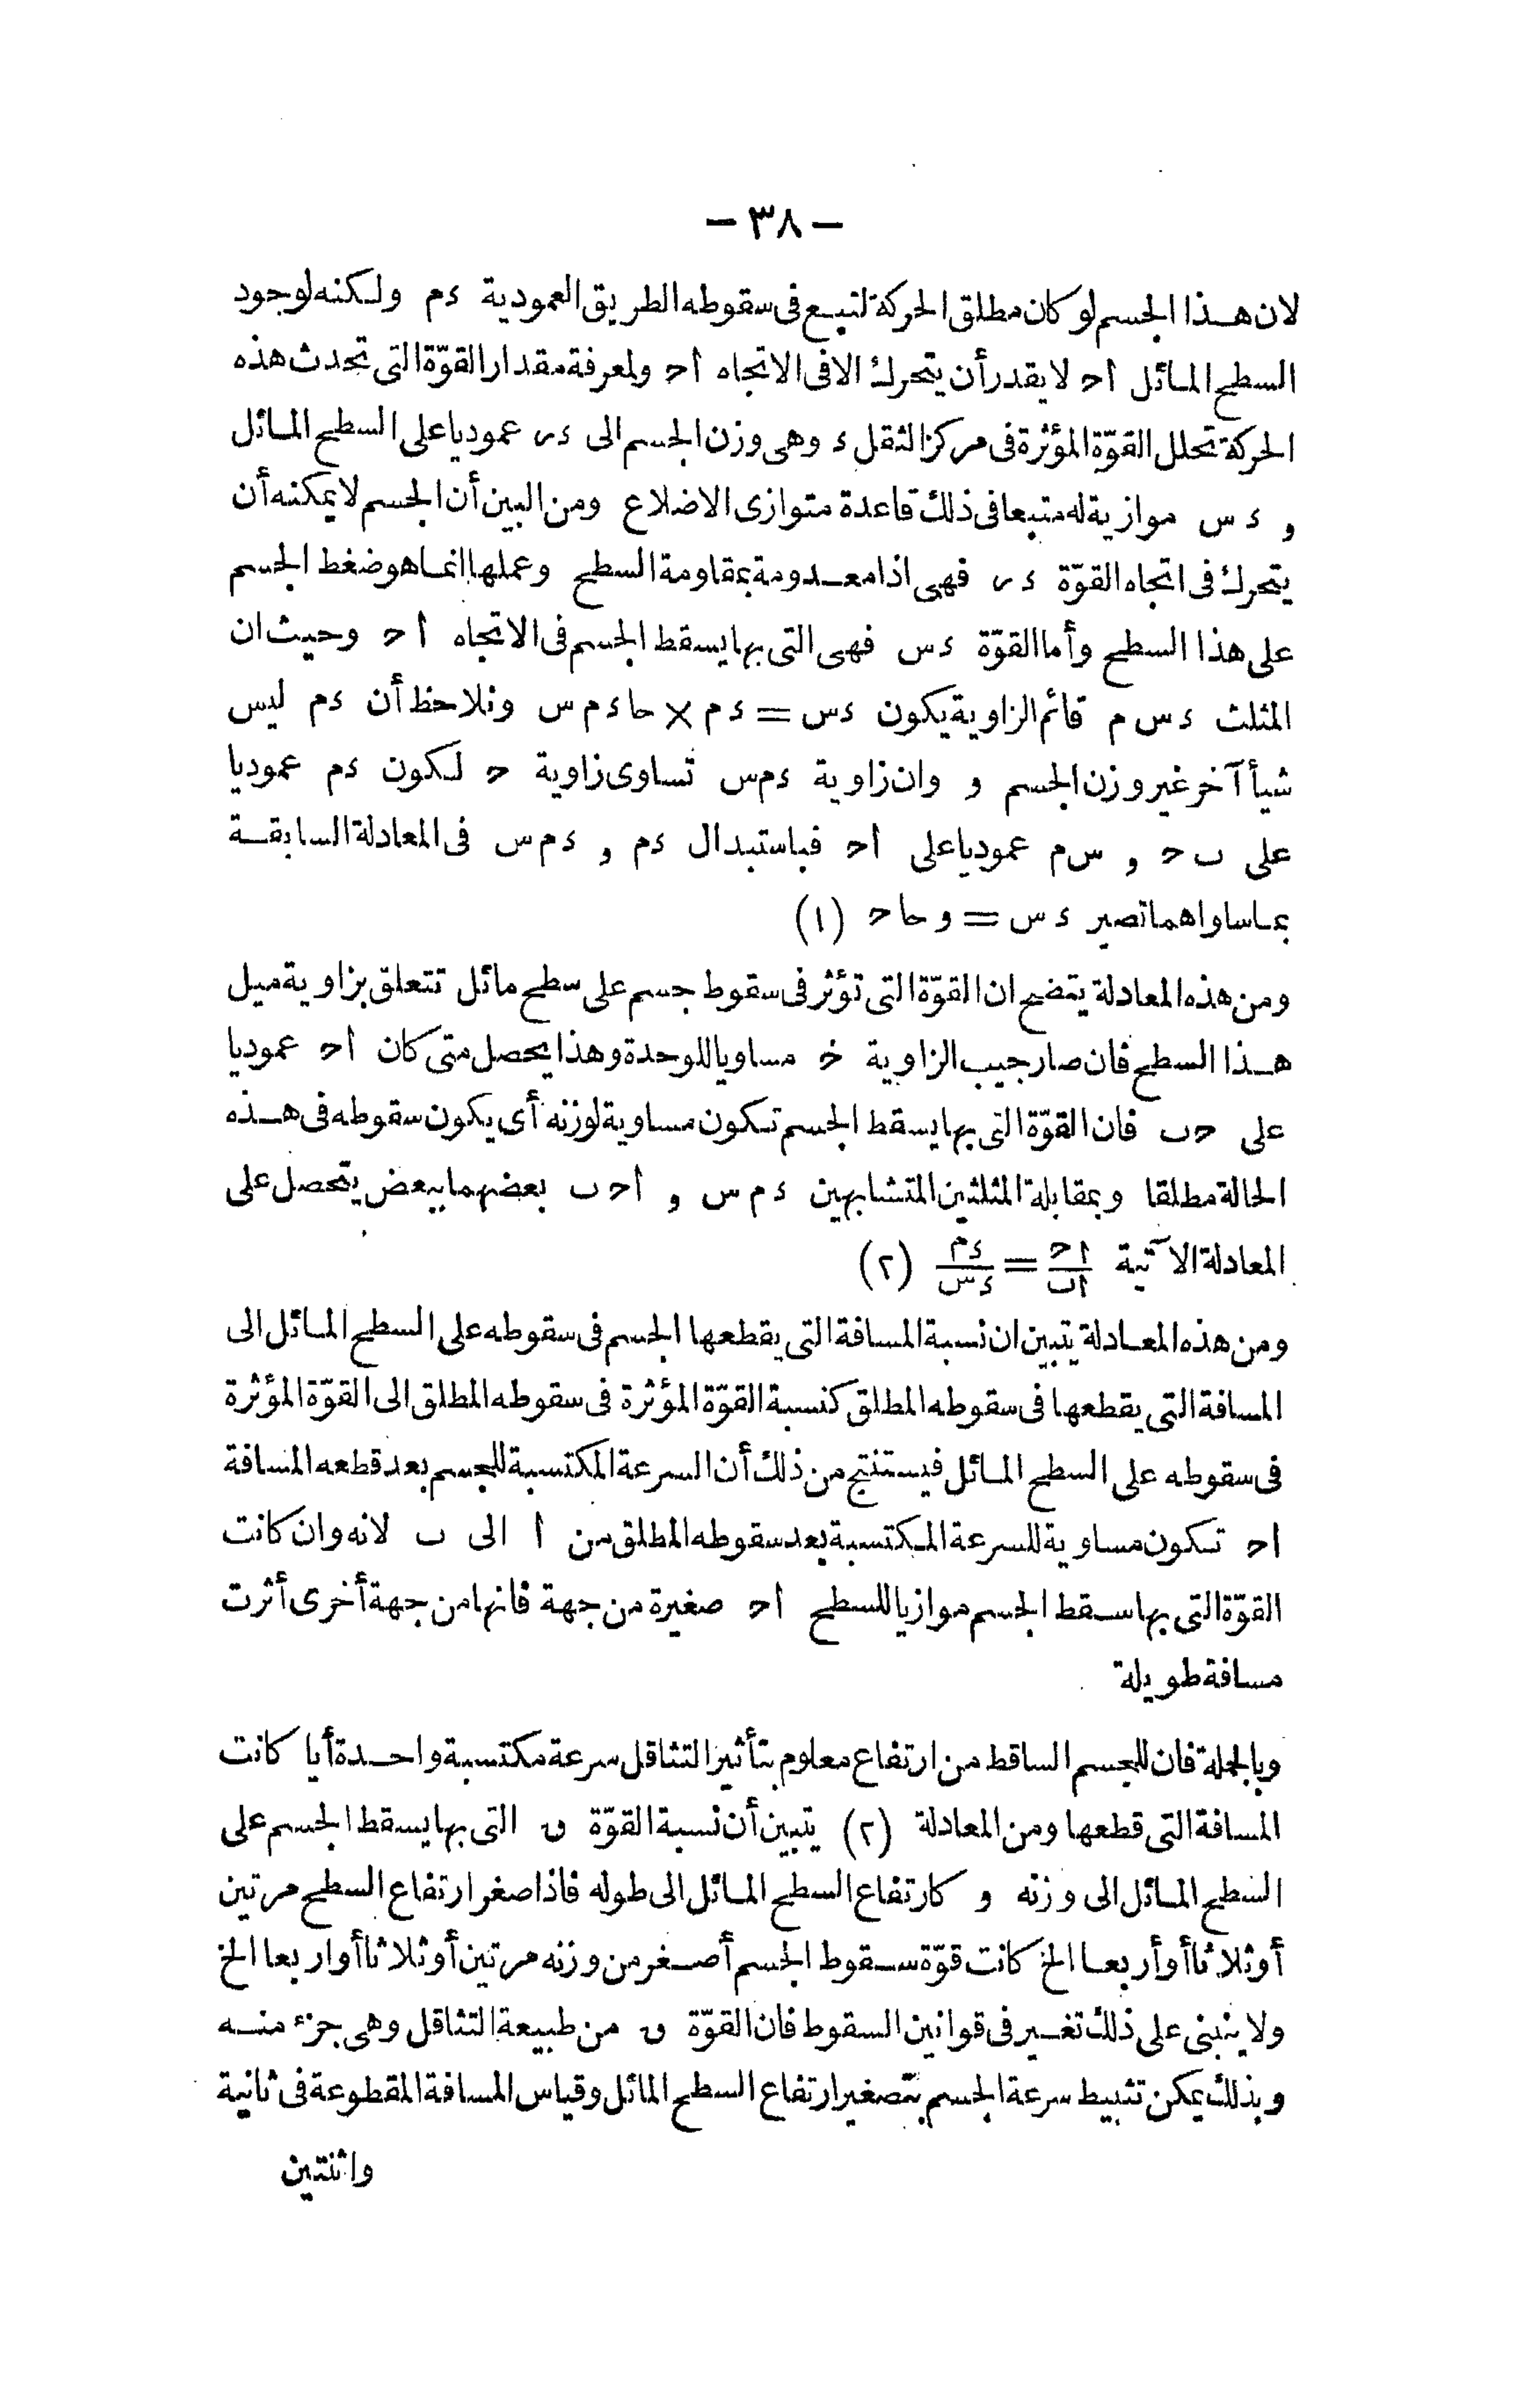 — ٣٨ —
لان هذا الجسم لو كان مطلق الحركة لتبع فى سقوطه الطريق العمودية ءم ولكنه لوجود
السطح المائل اح لا يقدر أن يتحرك الا فى الاتجاه اح ولمعرفة مقدار القوّة التى تحدث هذه
الحركة تحلل القوّة المؤثرة فى مركز الثقل ء وهى وزن الجسم الى ءر عموديا على السطح المائل
و ءس موازية له متبعا فى ذلك قاعدة متوازى الاضلاع ومن البين أن الجسم لا يمكنه أن
يتحرك فى اتجاه القوّة ءر فهى اذا معدومة بمقاومة السطح وعملها انما هو ضغط الجسم
على هذا السطح وأما القوّة ءس فهى التى بها يسقط الجسم فى الاتجاه اح وحيث ان
المثلث ءس م قائم الزاوية يكون ءس = ءم × حاءم س ونلاحظ أن ءم ليس
شيأ آخر غير وزن الجسم و وان زاوية ءم س تساوى زاوية ح لكون ءم عموديا
على ب ح و س م عموديا على اح فباستبدال ءم و ءم س فى المعادلة السابقة
بما ساواهما تصير ءس = و حاح (١)
ومن هذه المعادلة يتضح ان القوّة التى تؤثر فى سقوط جسم على سطح مائل تتعلق بزاوية ميل
هذا السطح فان صار جيب الزاوية ح مساويا للوحدة وهذا يحصل متى كان اح عموديا
على ح ب فان القوّة التى بها يسقط الجسم تكون مساوية لوزنه أى يكون سقوطه فى هذه
الحالة مطلقا وبمقابلة المثلثين المتشابهين ءم س و اح ب بعضهما ببعض يتحصل على
المعادلة الآتية اح/اب = ءم/ءس (٢)
ومن هذه المعادلة يتبين ان نسبة المسافة التى يقطعها الجسم فى سقوطه على السطح المائل الى
المسافة التى يقطعها فى سقوطه المطلق كنسبة القوّة المؤثرة فى سقوطه المطلق الى القوّة المؤثرة
فى سقوطه على السطح المائل فيستنتج من ذلك أن السرعة المكتسبة للجسم بعد قطعه المسافة
اح تكون مساوية للسرعة المكتسبة بعد سقوطه المطلق من ا الى ب لانه وان كانت
القوّة التى بها سقط الجسم موازيا للسطح اح صغيرة من جهة فانها من جهة أخرى أثرت
مسافة طويلة
وبالجملة فان للجسم الساقط من ارتفاع معلوم بتأثير التثاقل سرعة مكتسبة واحدة أيا كانت
المسافة التى قطعها ومن المعادلة (٢) يتبين أن نسبة القوّة ق التى بها يسقط الجسم على
السطح المائل الى وزنه و كارتفاع السطح المائل الى طوله فاذا صغر ارتفاع السطح مرتين
أو ثلاثا أو أربعا الخ كانت قوّة سقوط الجسم أصغر من وزنه مرتين أو ثلاثا أو اربعا الخ
ولا ينبنى على ذلك تغيير فى قوانين السقوط فان القوّة ق من طبيعة التثاقل وهى جزء منه
وبذلك يمكن تثبيط سرعة الجسم بتصغير ارتفاع السطح المائل وقياس المسافة المقطوعة فى ثانية
واثنتين